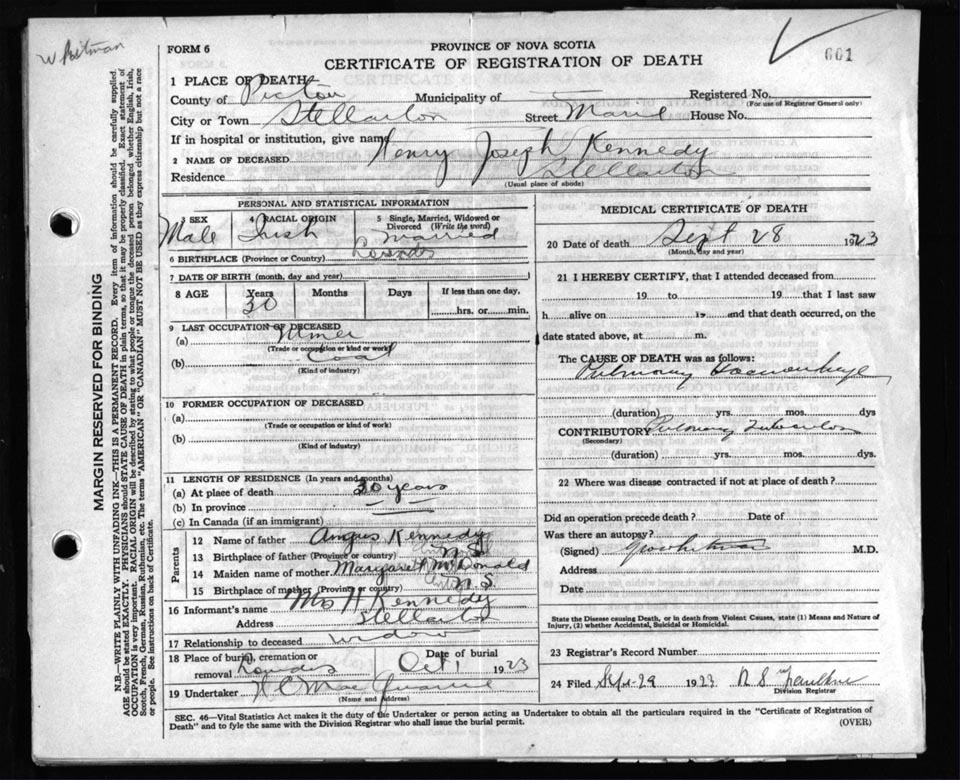 W Pitman
FORM 6
PROVINCE OF NOVA SCOTIA
CERTIFICATE OF REGISTRATION OF DEATH
601
1 PLACE OF DEATH
County of Pictou Municipality of Registered No.
(For use of Registrar General only)
City or Town Stellarton Street Marie House No.
If in hospital or institution, give name
2 NAME OF DECEASED Henry Joseph Kennedy
Residence Stellarton
(Usual place of abode)
MARGIN RESERVED FOR BINDING
N.B.—WRITE PLAINLY WITH UNFADING INK—THIS IS A PERMANENT RECORD. Every item of information should be carefully supplied.
AGE should be stated EXACTLY. PHYSICIANS should STATE CAUSE OF DEATH in plain terms, so that it may be properly classified. Exact statement of
OCCUPATION is very important. RACIAL ORIGIN will be described by stating to what people or tongue the deceased person belonged whether English, Irish,
Scotch, French, German, Russian, Ruthenian, etc. The terms "AMERICAN" OR "CANADIAN" MUST NOT BE USED as they express citizenship but not a race
or people. See instructions on back of Certificate.
PERSONAL AND STATISTICAL INFORMATION
3 SEX 4 RACIAL ORIGIN 5 Single, Married, Widowed or
Divorced (Write the word)
Male Irish Married
6 BIRTHPLACE (Province or Country) Lourdes
7 DATE OF BIRTH (month, day and year)
8 AGE Years Months Days If less than one day,
30 hrs. or min.
9 LAST OCCUPATION OF DECEASED
(a) Miner
(Trade or occupation or kind or work)
(b) Coal
(Kind of industry)
10 FORMER OCCUPATION OF DECEASED
(a)
(Trade or occupation or kind of work)
(b)
(Kind of industry)
11 LENGTH OF RESIDENCE (In years and months)
(a) At place of death 30 years
(b) In province
(c) In Canada (if an immigrant)
Parents
12 Name of father Angus Kennedy
13 Birthplace of father (Province or country) N.S.
14 Maiden name of mother Margaret McDonald
15 Birthplace of mother (Province or country) N.S.
16 Informant's name Mrs H Kennedy
Address Stellarton
17 Relationship to deceased widow
18 Place of burial, cremation or Date of burial
removal Lourdes Oct 1 1923
19 Undertaker
(Name and address)
MEDICAL CERTIFICATE OF DEATH
20 Date of death Sept 28 1923
(Month, day and year)
21 I HEREBY CERTIFY, that I attended deceased from
19 to 19 that I last saw
h alive on 19 and that death occurred, on the
date stated above, at m.
The CAUSE OF DEATH was as follows:
Pulmonary Haemorrhage
(duration) yrs. mos. dys
CONTRIBUTORY Pulmonary Tuberculosis
(Secondary)
(duration) yrs. mos. dys.
22 Where was disease contracted if not at place of death?
Did an operation precede death? Date of
Was there an autopsy?
(Signed) M.D.
Address
Date
State the Disease causing Death, or in death from Violent Causes, state (1) Means and Nature of
Injury, (2) whether Accidental, Suicidal or Homicidal.
23 Registrar's Record Number
24 Filed Sept-29 1923 R S Faulkner
Division Registrar
SEC. 46—Vital Statistics Act makes it the duty of the Undertaker or person acting as Undertaker to obtain all the particulars required in the "Certificate of Registration of
Death" and to fyle the same with the Division Registrar who shall issue the burial permit.
(OVER)